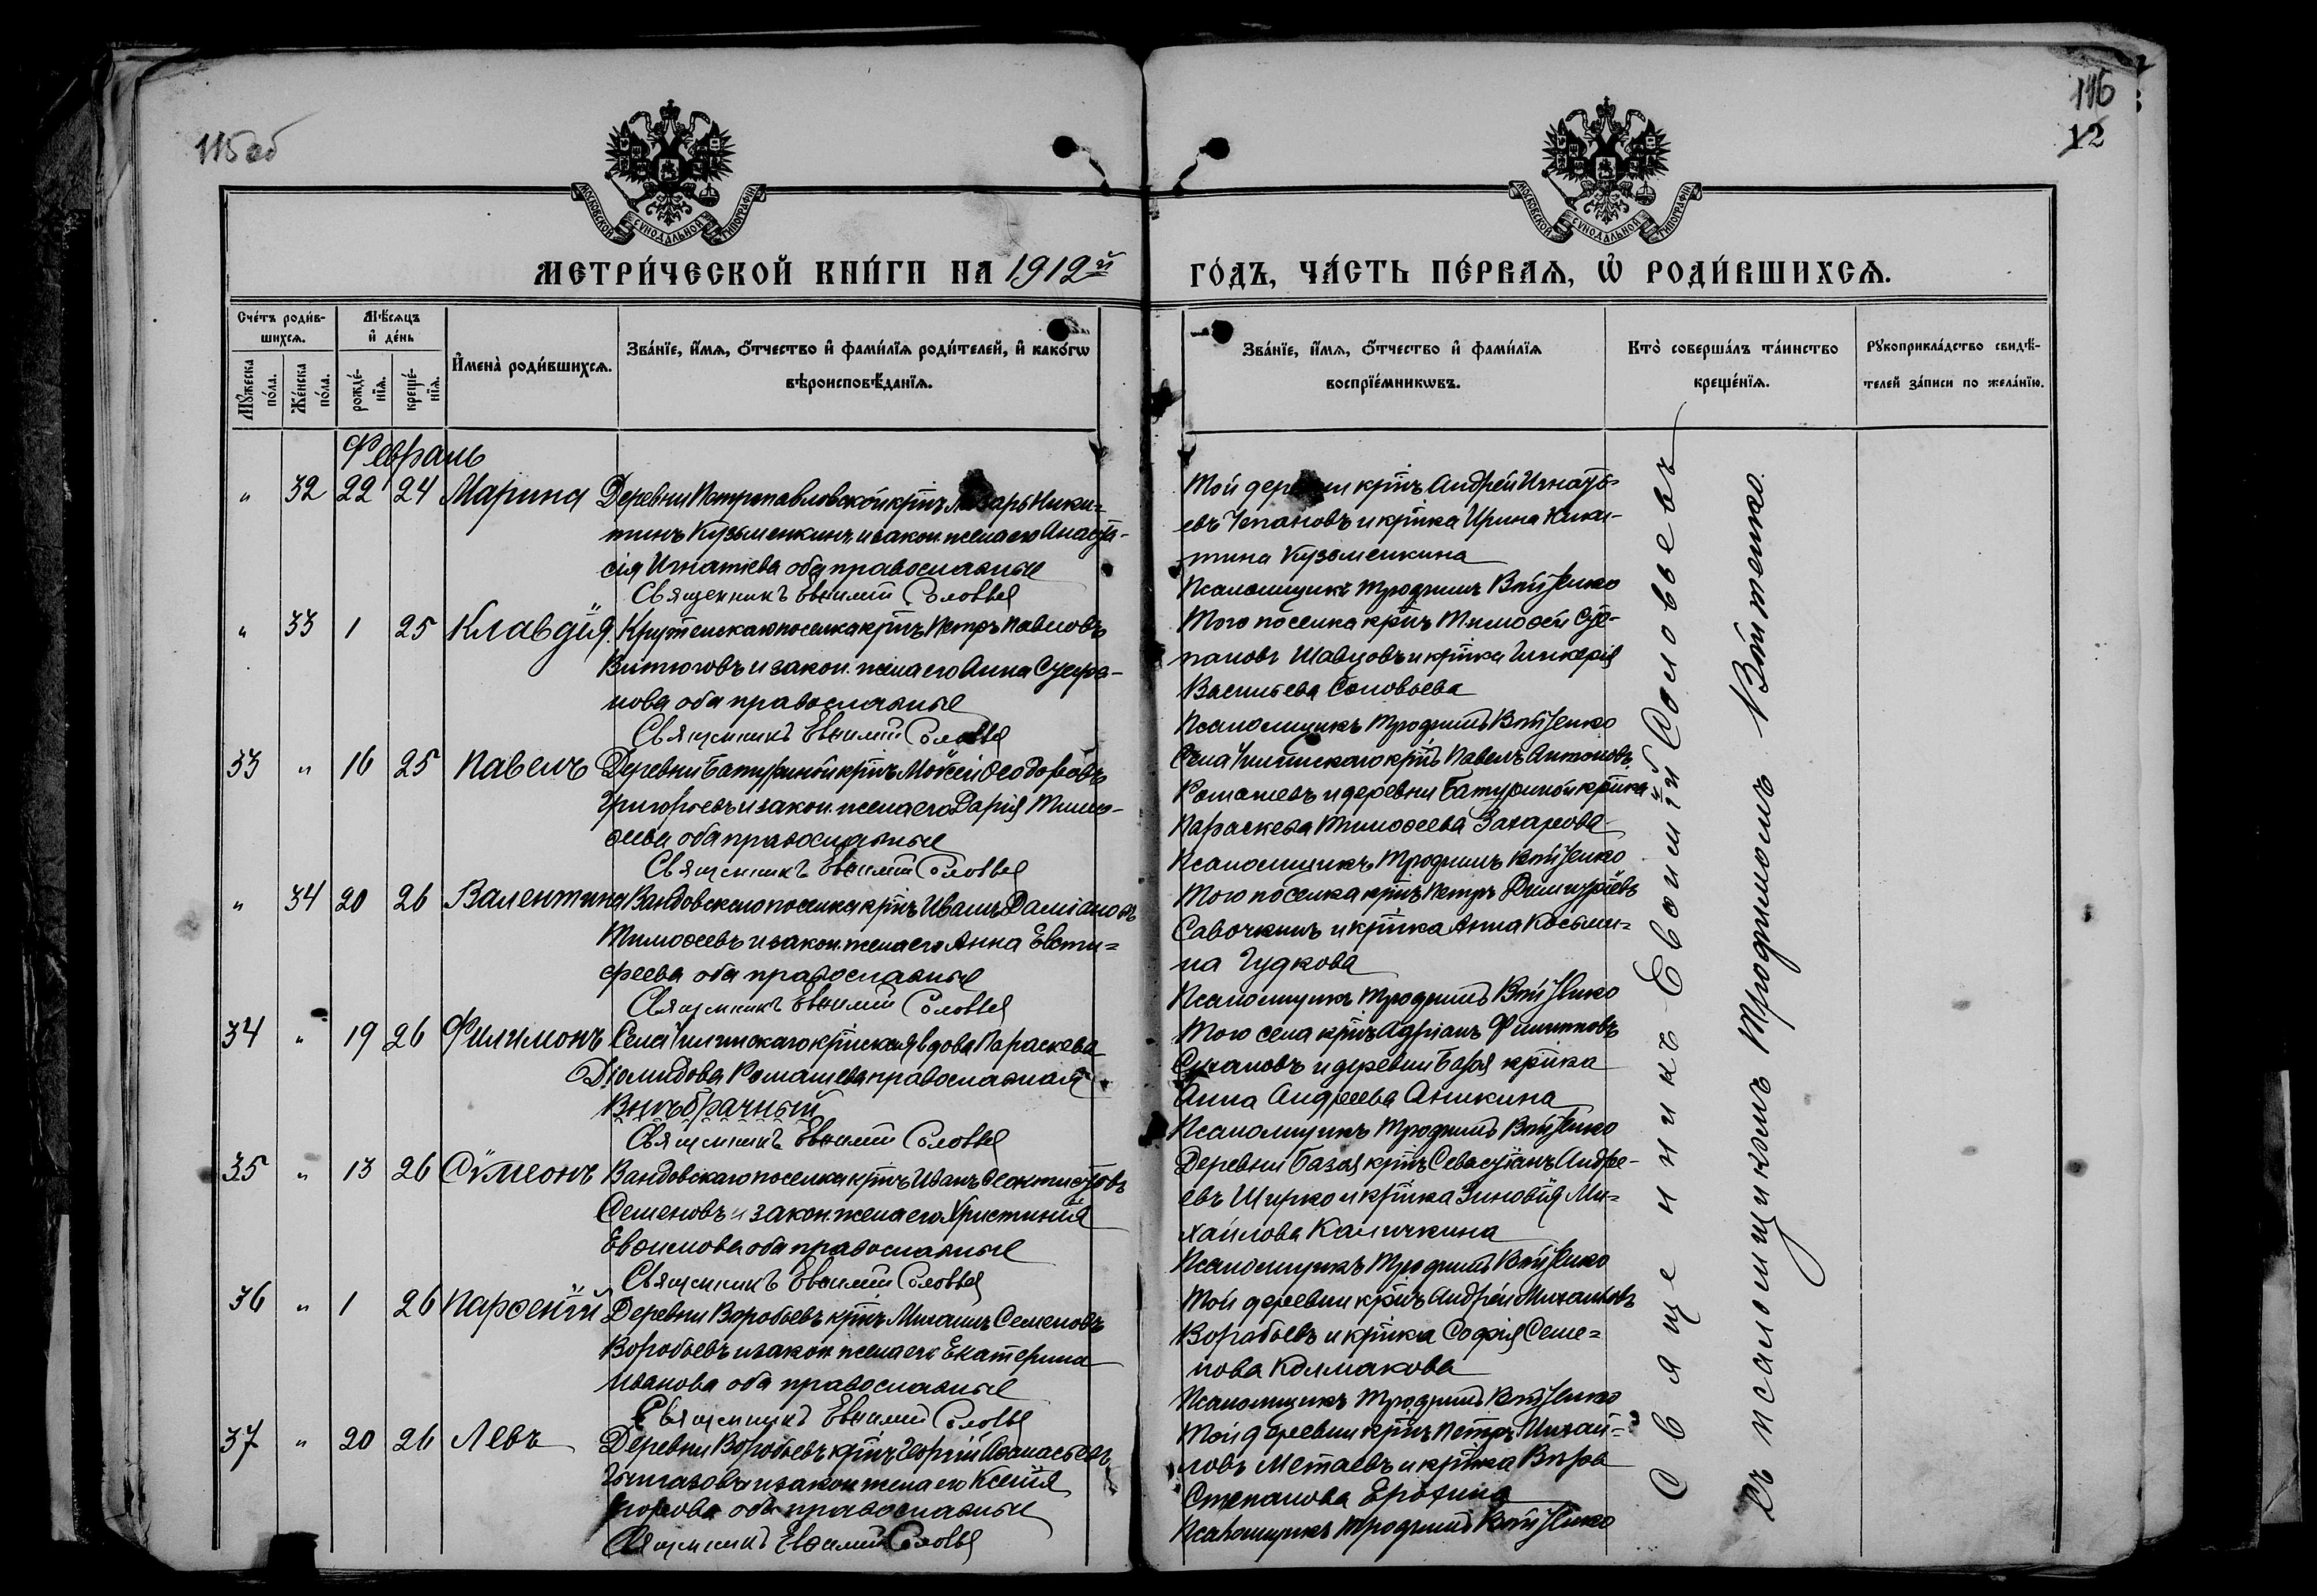 115об
116
12
МОСКОВСКОЙ СѴНОДАЛЬНОЙ ТИПОГРАФІИ
МОСКОВСКОЙ СѴНОДАЛЬНОЙ ТИПОГРАФІИ
МЕТРИ́ЧЕСКОЙ КНИ́ГИ НА 1912й
ГО́ДЪ, ЧА́СТЬ ПЕ́РВАѦ, Ѡ҆ РОДИ́ВШИХСѦ.
Сче́тъ роди́в-
шихсѧ.
Мꙋ́жеска по́ла.
Же́нска по́ла.
Мѣ́сѧцъ
и҆ де́нь
рожде́-нїѧ.
креще́-нїѧ.
И҆мена̀ роди́вшихсѧ.
Зва́нїе, и҆́мѧ, ѻ҆́тчество и҆ фами́лїѧ роди́телей, и҆ како́гѡ
вѣроисповѣ́данїѧ.
Зва́нїе, и҆́мѧ, ѻ҆́тчество и҆ фами́лїѧ
воспрїе́мникѡвъ.
Кто̀ соверша́лъ та́инство
креще́нїѧ.
Рꙋкоприкла́дство свидѣ́-
телей за́писи по жела́нїю.
Февраль
" 32 22 24 Марина Деревни Петропавловской крнъ Лазарь Ники-
тинъ Кузьменкинъ и закон. жена его Анаста-
сія Игнатіева оба православные
Священникъ Евѳимій Соловьев
Той деревни крнъ Андрей Игнать-
евъ Чепановъ и крнка Ирина Ники-
тина Кузьменкина
Псаломщикъ Трофимъ Войтенко
" 33 1 25 Клавдія Крутенскаго поселка крнъ Петръ Павловъ
Витюговъ и закон. жена его Анна Стефа-
нова оба православные
Священникъ Евѳимій Соловьев
Того поселка крнъ Тимоѳей Сте-
пановъ Шавцовъ и крнка Гликерія
Васильева Соловьева
Псаломщикъ Трофимъ Войтенко
33 " 16 25 Павелъ Деревни Батуриной крнъ Моѵсей Ѳеодоровъ
Григорьевъ и закон. жена его Дарія Тимо-
ѳеева оба православные
Священникъ Евѳимій Соловьев
Села крнъ Павелъ Антоновъ
Ромашевъ и деревни Батуриной крнка
Параскева Тимоѳеева Захарова
Псаломщикъ Трофимъ Войтенко
" 34 20 26 Валентина Вандовскаго поселка крнъ Иванъ Даміановъ
Тимоѳеевъ и закон. жена его Анна Евсти-
феева оба православные
Священникъ Евѳимій Соловьев
Того поселка крнъ Петръ Димитріевъ
Савочкинъ и крнка Анна Косьми-
на Гудкова
Псаломщикъ Трофимъ Войтенко
34 " 19 26 Филимонъ Села крнская вдова Параскева
Діомидова Ромашева православная
Внѣбрачный
Священникъ Евѳимій Соловьев
Того села крнъ Адріанъ Филипповъ
Сухановъ и деревни Базоя крнка
Анна Андреева Аникина
Псаломщикъ Трофимъ Войтенко
35 " 13 26 Сѵмеонъ Вандовскаго поселка крнъ Иванъ Ѳеоктистовъ
Семеновъ и закон. жена его Христинія
Евѳимова оба православные
Священникъ Евѳимій Соловьев
Деревни Базоя крнъ Севастіанъ Андре-
евъ Ширко и крнка Зиновія Ми-
хайлова Каличкина
Псаломщикъ Трофимъ Войтенко
36 " 1 26 Парѳеній Деревни Воробьевъ крнъ Михаилъ Семеновъ
Воробьевъ и закон. жена его Екатерина
Иванова оба православные
Священникъ Евѳимій Соловьев
Той деревни крнъ Андрей Михайловъ
Воробьевъ и крнка Софія Семе-
нова Колмакова
Псаломщикъ Трофимъ Войтенко
37 " 20 26 Левъ Деревни Воробьевъ крнъ Георгій Аѳанасьевъ
и закон. жена его Ксенія
оба православные
Священникъ Евѳимій Соловьев
Той деревни крнъ Петръ Михай-
ловъ Метаевъ и крнка Вѣра
Степанова Ерохина
Псаломщикъ Трофимъ Войтенко
Священникъ Евѳимій Соловьевъ
съ псаломщикомъ Трофимомъ Войтенко.